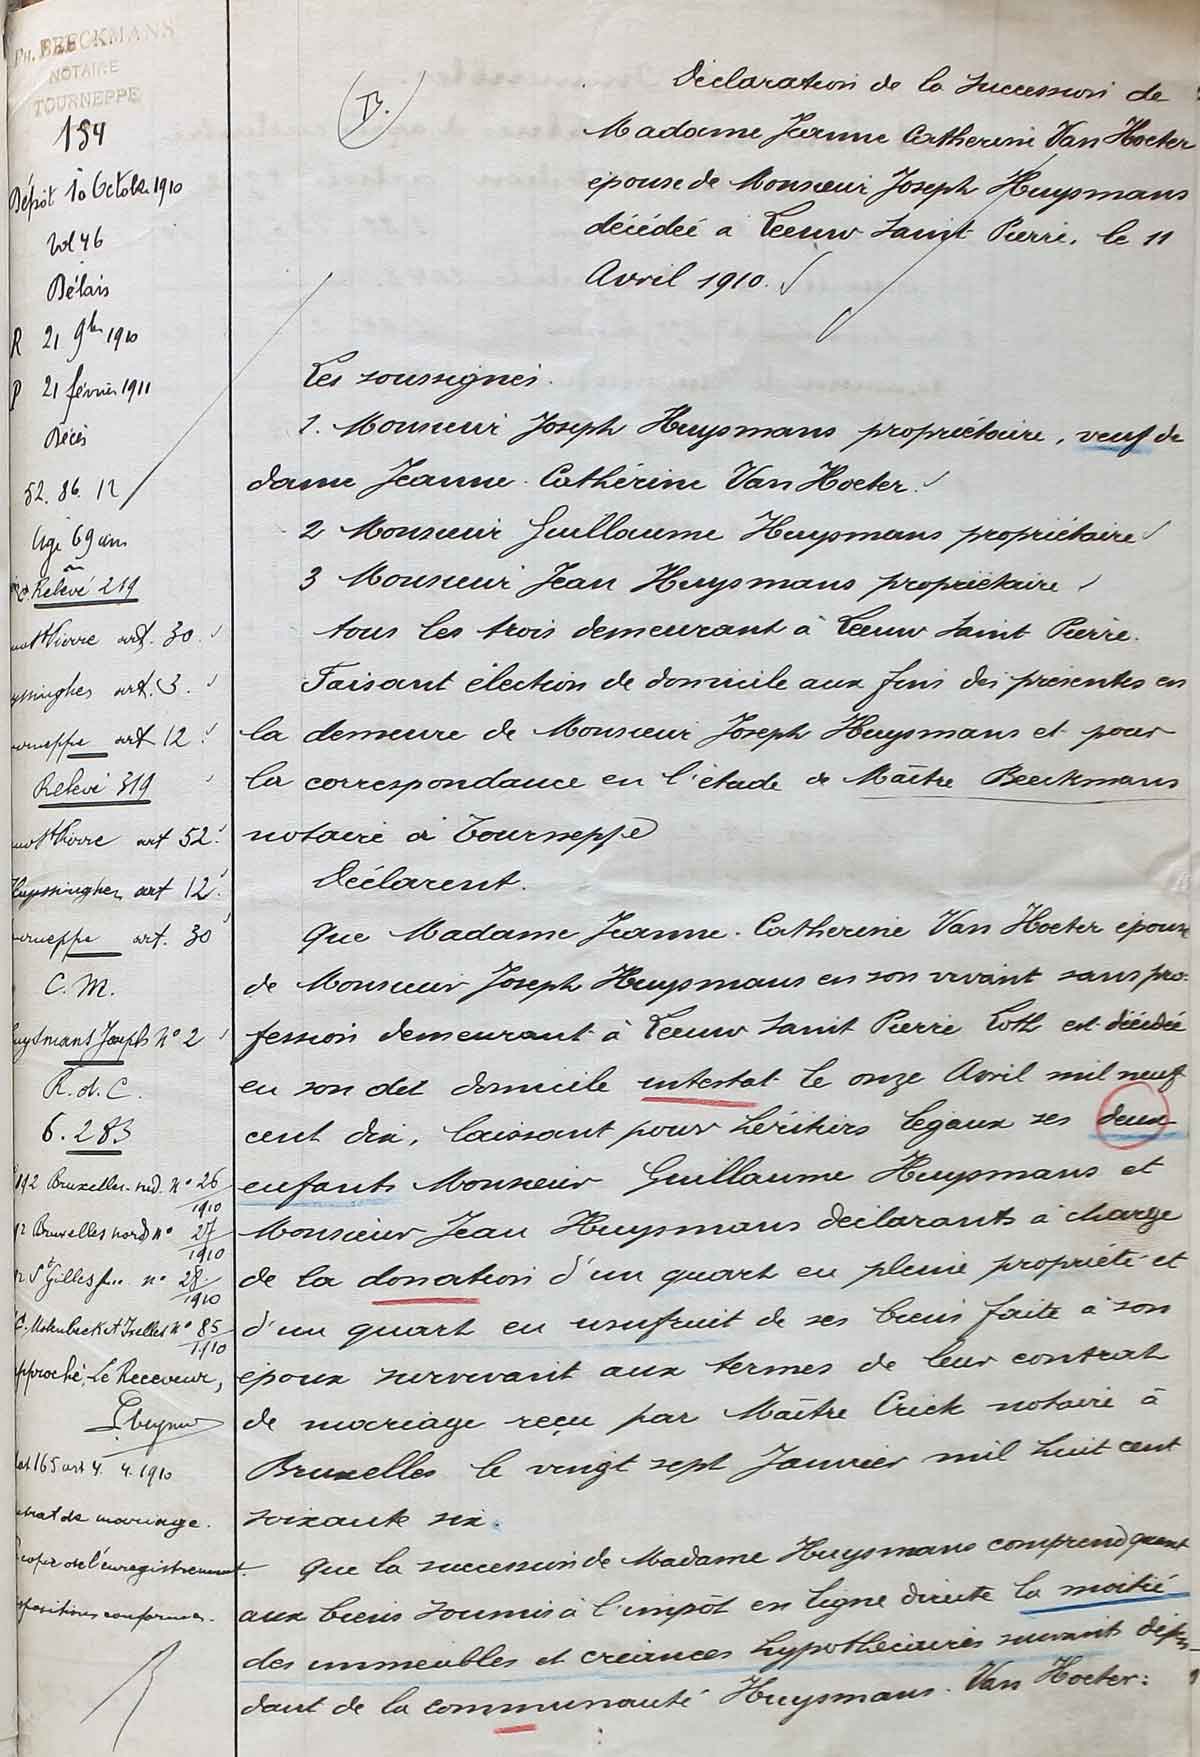 PH. BEECKMANS
NOTAIRE
TOURNEPPE
154
Dépôt 10 Octobre 1910
Vol 46
Délais
R 21 9bre 1910
P 21 février 1911
Décès
52. 86. 12
Agé 69 ans
Relevé 219
St Pierre art. 30.
art. 3.
art 12.
Relevé 319
St Pierre art 52.
Huyssinghen art 12.
art. 30
C. M.
uysmans Joseph No 2
R. d. C.
6. 283
192 Bruxelles sud. No 26/1910
Bruxelles nord No 27/1910
St Gilles No 28/1910
Molenbeek et Ixelles No 85/1910
approché, Le Receveur,
165 art 4. 4. 1910
contrat de mariage.
copie de l'enregistrement.
dispositions conformes.
B.
Déclaration de la succession de
Madame Jeanne Catherine Van Hoeter
épouse de Monsieur Joseph Huysmans
décédée à Leeuw Saint Pierre, le 11
Avril 1910.
Les soussignés.
1. Monsieur Joseph Huysmans propriétaire, veuf de
dame Jeanne. Cathérine Van Hoeter.
2 Monsieur Guillaume Huysmans propriétaire
3 Monsieur Jean Huysmans propriétaire
tous les trois demeurant à Leeuw Saint Pierre.
Faisant élection de domicile aux fins des présentes en
la demeure de Monsieur Joseph Huysmans et pour
la correspondance en l'étude de Maître Beeckmans
notaire à Tourneppe
Déclarent.
Que Madame Jeanne. Catherine Van Hoeter épouse
de Monsieur Joseph Huysmans en son vivant sans pro-
fession demeurant à Leeuw Saint Pierre Loth est décédée
en son dit domicile intestat le onze Avril mil neuf
cent dix, laissant pour héritiers légaux ses deux
enfants Monsieur Guillaume Huysmans et
Monsieur Jean Huysmans déclarants à charge
de la donation d'un quart en pleine propriété et
d'un quart en usufruit de ses biens faite à son
époux survivant aux termes de leur contrat
de mariage reçu par Maître Crick notaire à
Bruxelles le vingt sept Janvier mil huit cent
soixante six.
Que la succession de Madame Huysmans comprend quant
aux biens soumis à l'impôt en ligne directe la moitié
des immeubles et créances hypothécaires suivants dépen-
dant de la communauté Huysmans. Van Hoeter: